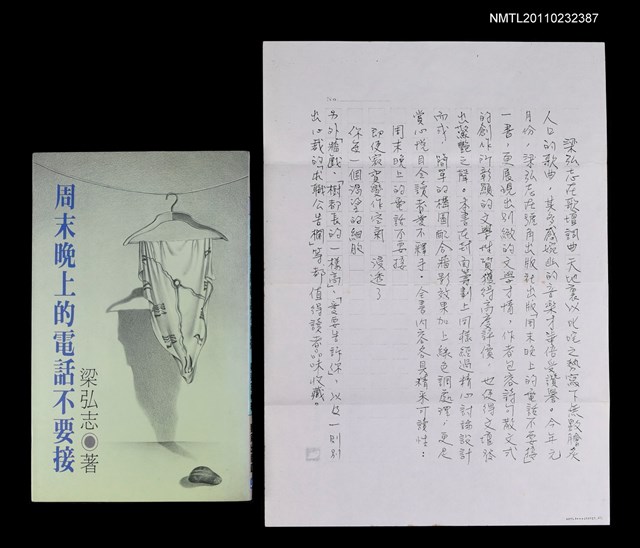 NMTL20110232387
周末晚上的電話不要接
梁弘志◉著
梁弘志在歌壇詞曲天地裏以叱咤之勢寫下無數膾炙
人口的歌曲，其多感婉約的音樂才華倍受讚譽。今年元
月份，梁弘志在號角出版社出版「周末晚上的電話不要接」
一書，更展現出別緻的文學才情，作者包容詩句散文式
的創作所彰顯的文學性質獲得高度評價，也使得文壇發
出驚艷之聲。本書在封面籌劃上同樣經過精心討論設計
而成，簡單的構圖配合稭影效果加上綠色調處理，更是
賞心悅目令讀者愛不釋手。全書內容冬具精采可讀性：
周末晚上的電話不要接
即使寂寞變作空氣 浸透了
你每一個渴望的細胞
另外「牆戲」「樹都長的一樣高」「愛要告訴你」以及一則別
出心裁的「求職公告欄」等都值得讀者品味收藏。